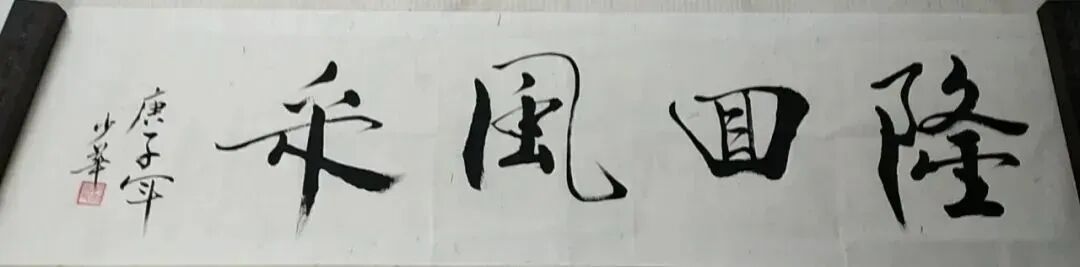 隆回風采
庚子年
少華